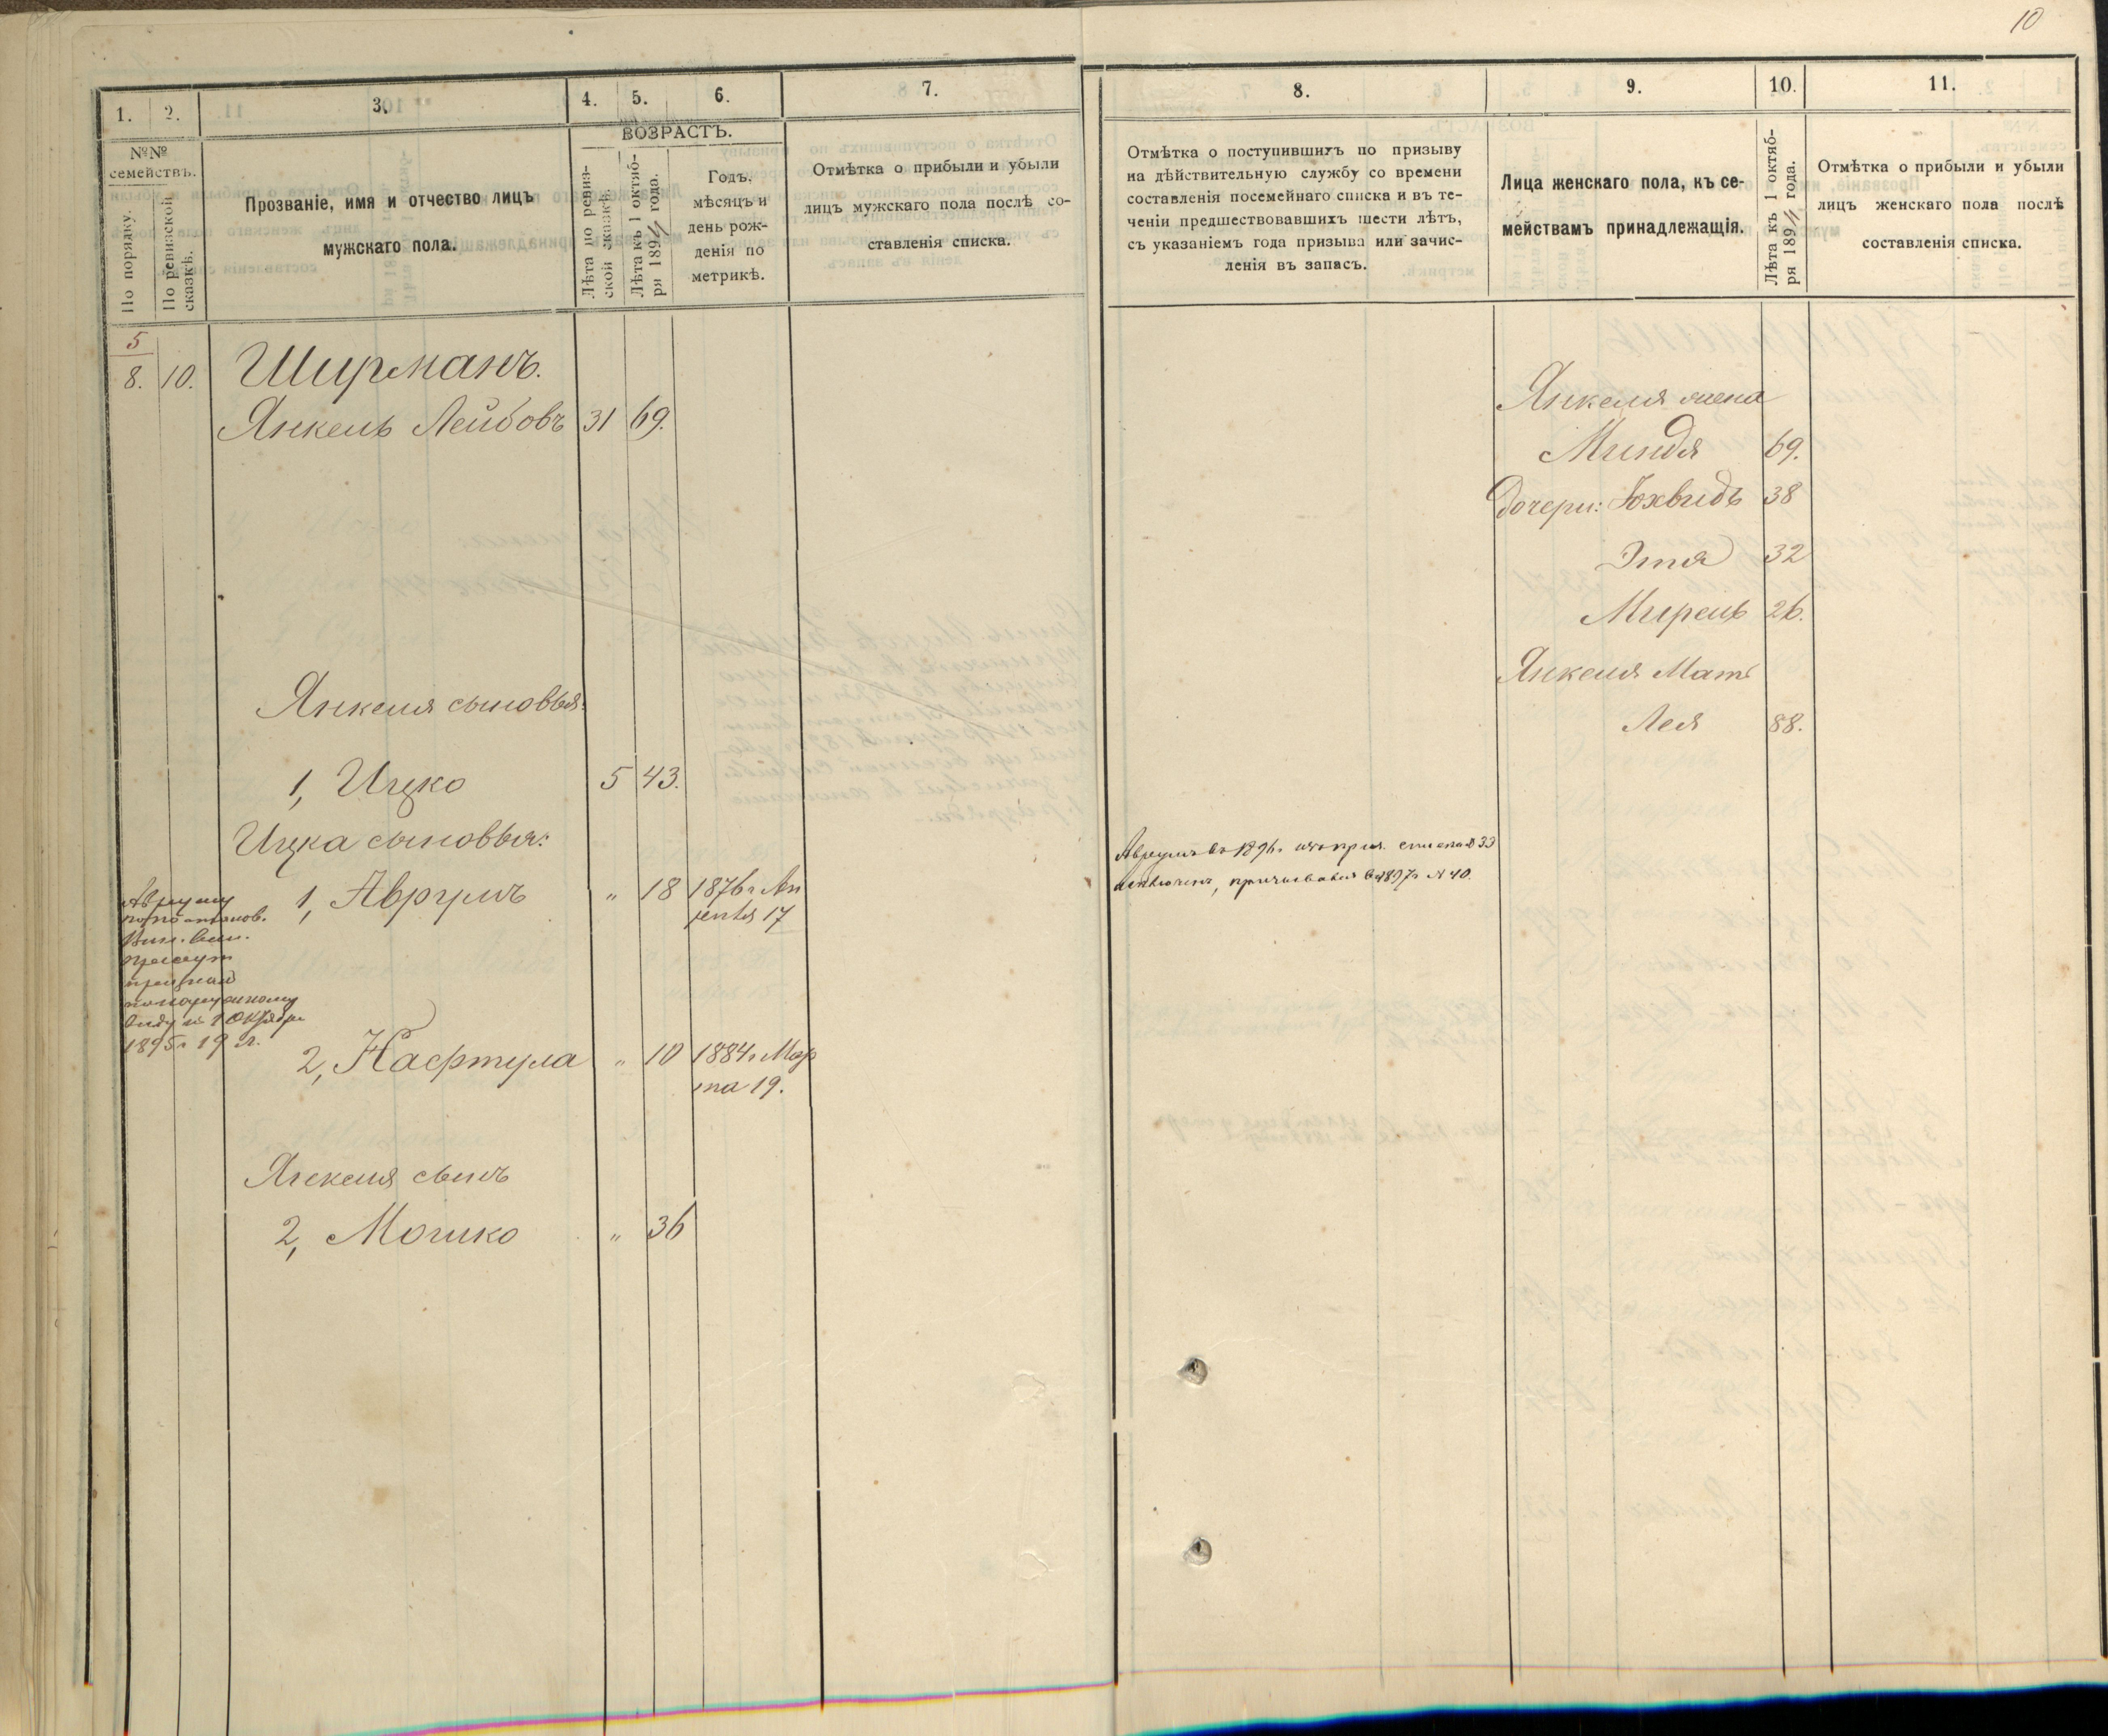 10
1.
2.
3.
4.
5.
6.
7.
№№ семействъ.
По порядку.
По ревизской сказкѣ.
Прозваніе, имя и отчество лицъ
мужскаго пола.
ВОЗРАСТЪ.
Лѣта по ревиз-
ской сказкѣ.
Лѣта къ 1 октяб-
ря 1894 года.
Годъ,
мѣсяцъ и
день рож-
денія по
метрикѣ.
Отмѣтка о прибыли и убыли
лицъ мужскаго пола послѣ со-
ставленія списка.
5
8. 10. Ширманъ.
Янкель Лейбовъ 31 69.
Янкеля сыновья:
1, Ицко 5 43.
Ицка сыновья:
1, Аврумъ " 18 1876 г Ап
реля 17
Авруму
по постанов.
присут
признан
по наружному
виду къ 1 Октября
1895 г 19 л.
2, Нафтула " 10 1884 г Мар
та 19.
Янкеля сынъ
2, Мошко " 36
8.
9.
10.
11.
Отмѣтка о поступившихъ по призыву
на дѣйствительную службу со времени
составленія посемейнаго списка и въ те-
ченіи предшествовавшихъ шести лѣтъ,
съ указаніемъ года призыва или зачис-
ленія въ запасъ.
Лица женскаго пола, къ се-
мействамъ принадлежащія.
Лѣта къ 1 октяб-
ря 1894 года.
Отмѣтка о прибыли и убыли
лицъ женскаго пола послѣ
составленія списка.
Янкеля жена
Миндя 69.
дочери: Юхвидъ 38
Этя 32
Мирель 26.
Янкеля Мать
Лея 88.
Аврумъ въ 1896 г изъ приз. списка № 33
исключенъ, призывался въ 1897 г № 40.